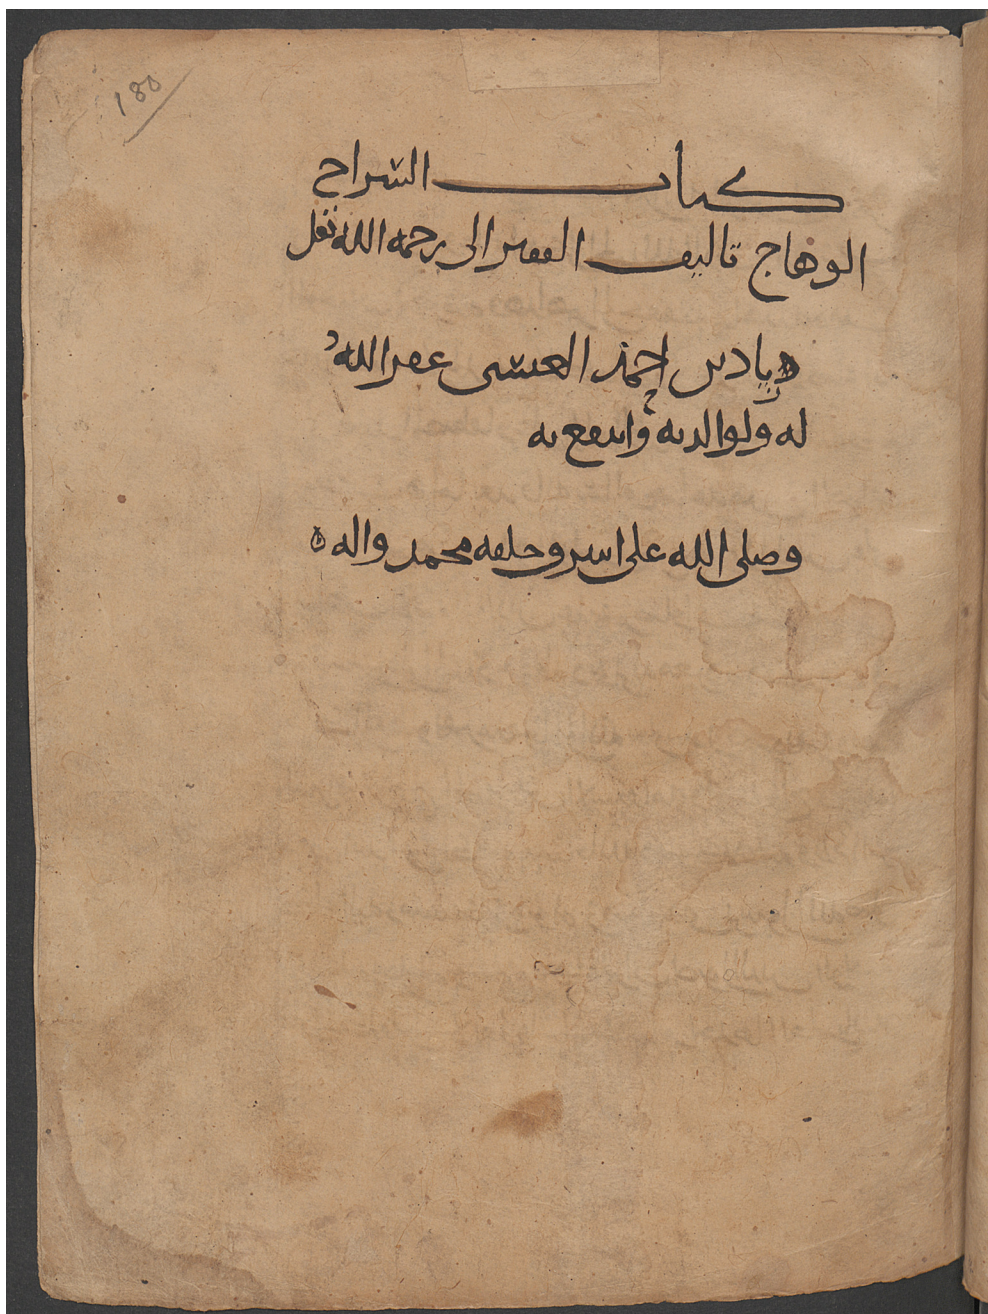 180
كتاب السراج
الوهاج تاليف الفقير الى رحمه الله تعلى
احمد العنسى غفر الله
له ولوالديه وانتفع به
وصلى الله على اشرف خلقه محمد واله